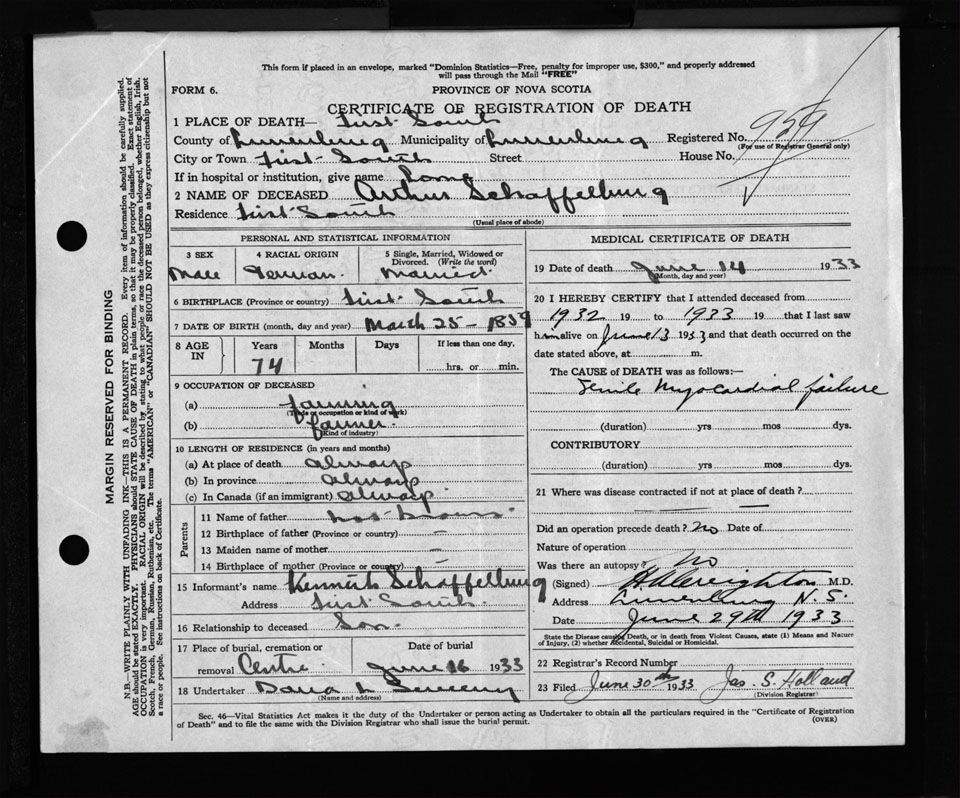 This form if placed in an envelope, marked "Dominion Statistics—Free, penalty for improper use, $300," and properly addressed
will pass through the Mail "FREE"
FORM 6. PROVINCE OF NOVA SCOTIA
CERTIFICATE OF REGISTRATION OF DEATH
1 PLACE OF DEATH— First South
County of Lunenburg Municipality of Lunenburg Registered No. 959
(For use of Registrar General only)
City or Town First South Street House No.
If in hospital or institution, give name Home
2 NAME OF DECEASED Arthur Schaffelburg
Residence First South
(Usual place of abode)
PERSONAL AND STATISTICAL INFORMATION
3 SEX 4 RACIAL ORIGIN 5 Single, Married, Widowed or
Divorced. (Write the word)
Male German Married
6 BIRTHPLACE (Province or country) First South
7 DATE OF BIRTH (month, day and year) March 25 - 1859
8 AGE IN Years Months Days If less than one day,
74 hrs. or min.
9 OCCUPATION OF DECEASED
(a) farming
(Trade or occupation or kind of work)
(b) farmer
(Kind of industry)
10 LENGTH OF RESIDENCE (in years and months)
(a) At place of death always
(b) In province always
(c) In Canada (if an immigrant) always
Parents
11 Name of father not known
12 Birthplace of father (Province or country) —
13 Maiden name of mother —
14 Birthplace of mother (Province or country)
15 Informant's name Kenneth Schaffelburg
Address First South
16 Relationship to deceased Son
17 Place of burial, cremation or Date of burial
removal Centre June 16 1933
18 Undertaker
(Name and address)
MEDICAL CERTIFICATE OF DEATH
19 Date of death June 14 1933
(Month, day and year)
20 I HEREBY CERTIFY that I attended deceased from
1932 19 to 1933 19 that I last saw
him alive on June 13 1933 and that death occurred on the
date stated above, at m.
The CAUSE of DEATH was as follows:
Senile Myocardial failure
(duration) yrs mos dys.
CONTRIBUTORY
(duration) yrs. mos. dys.
21 Where was disease contracted if not at place of death?
Did an operation precede death? no Date of
Nature of operation
Was there an autopsy? no
(Signed) H A Creighton M.D.
Address Lunenburg N. S.
Date June 29th 1933
State the Disease causing Death, or in death from Violent Causes, state (1) Means and Nature
of Injury, (2) whether Accidental, Suicidal or Homicidal.
22 Registrar's Record Number
23 Filed June 30th 1933 Jas. S. Holland
(Division Registrar)
Sec. 46—Vital Statistics Act makes it the duty of the Undertaker or person acting as Undertaker to obtain all the particulars required in the "Certificate of Registration
of Death" and to file the same with the Division Registrar who shall issue the burial permit. (OVER)
MARGIN RESERVED FOR BINDING
N.B.—WRITE PLAINLY WITH UNFADING INK—THIS IS A PERMANENT RECORD. Every item of information should be carefully supplied.
AGE should be stated EXACTLY. PHYSICIANS should STATE CAUSE OF DEATH in plain terms, so that it may be properly classified. Exact statement of
OCCUPATION is very important. RACIAL ORIGIN will be described by stating to what people or race the deceased person belonged, whether English, Irish,
Scotch, French, German, Russian, Ruthenian, etc. The terms "AMERICAN" or "CANADIAN" SHOULD NOT BE USED as they express citizenship but not
a race or people. See instructions on back of Certificate.